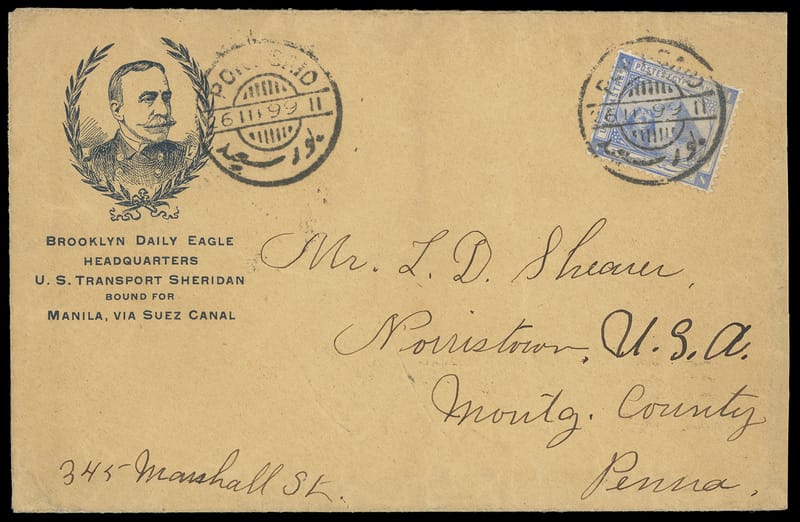 PORT-SAID
6 III 99 II
بور سعيد
PORT-SAID
6 III 99 II
بور سعيد
BROOKLYN DAILY EAGLE
HEADQUARTERS
U. S. TRANSPORT SHERIDAN
BOUND FOR
MANILA, VIA SUEZ CANAL
Mr. L. D. Shearer,
Norristown, U.S.A.
Montg. County
Penna,
345 Marshall St.